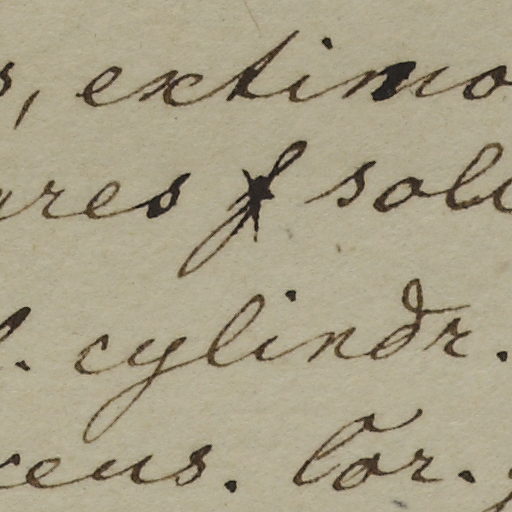 s, extimo
ares f sol
l. cylindr.
ceus. Cor.